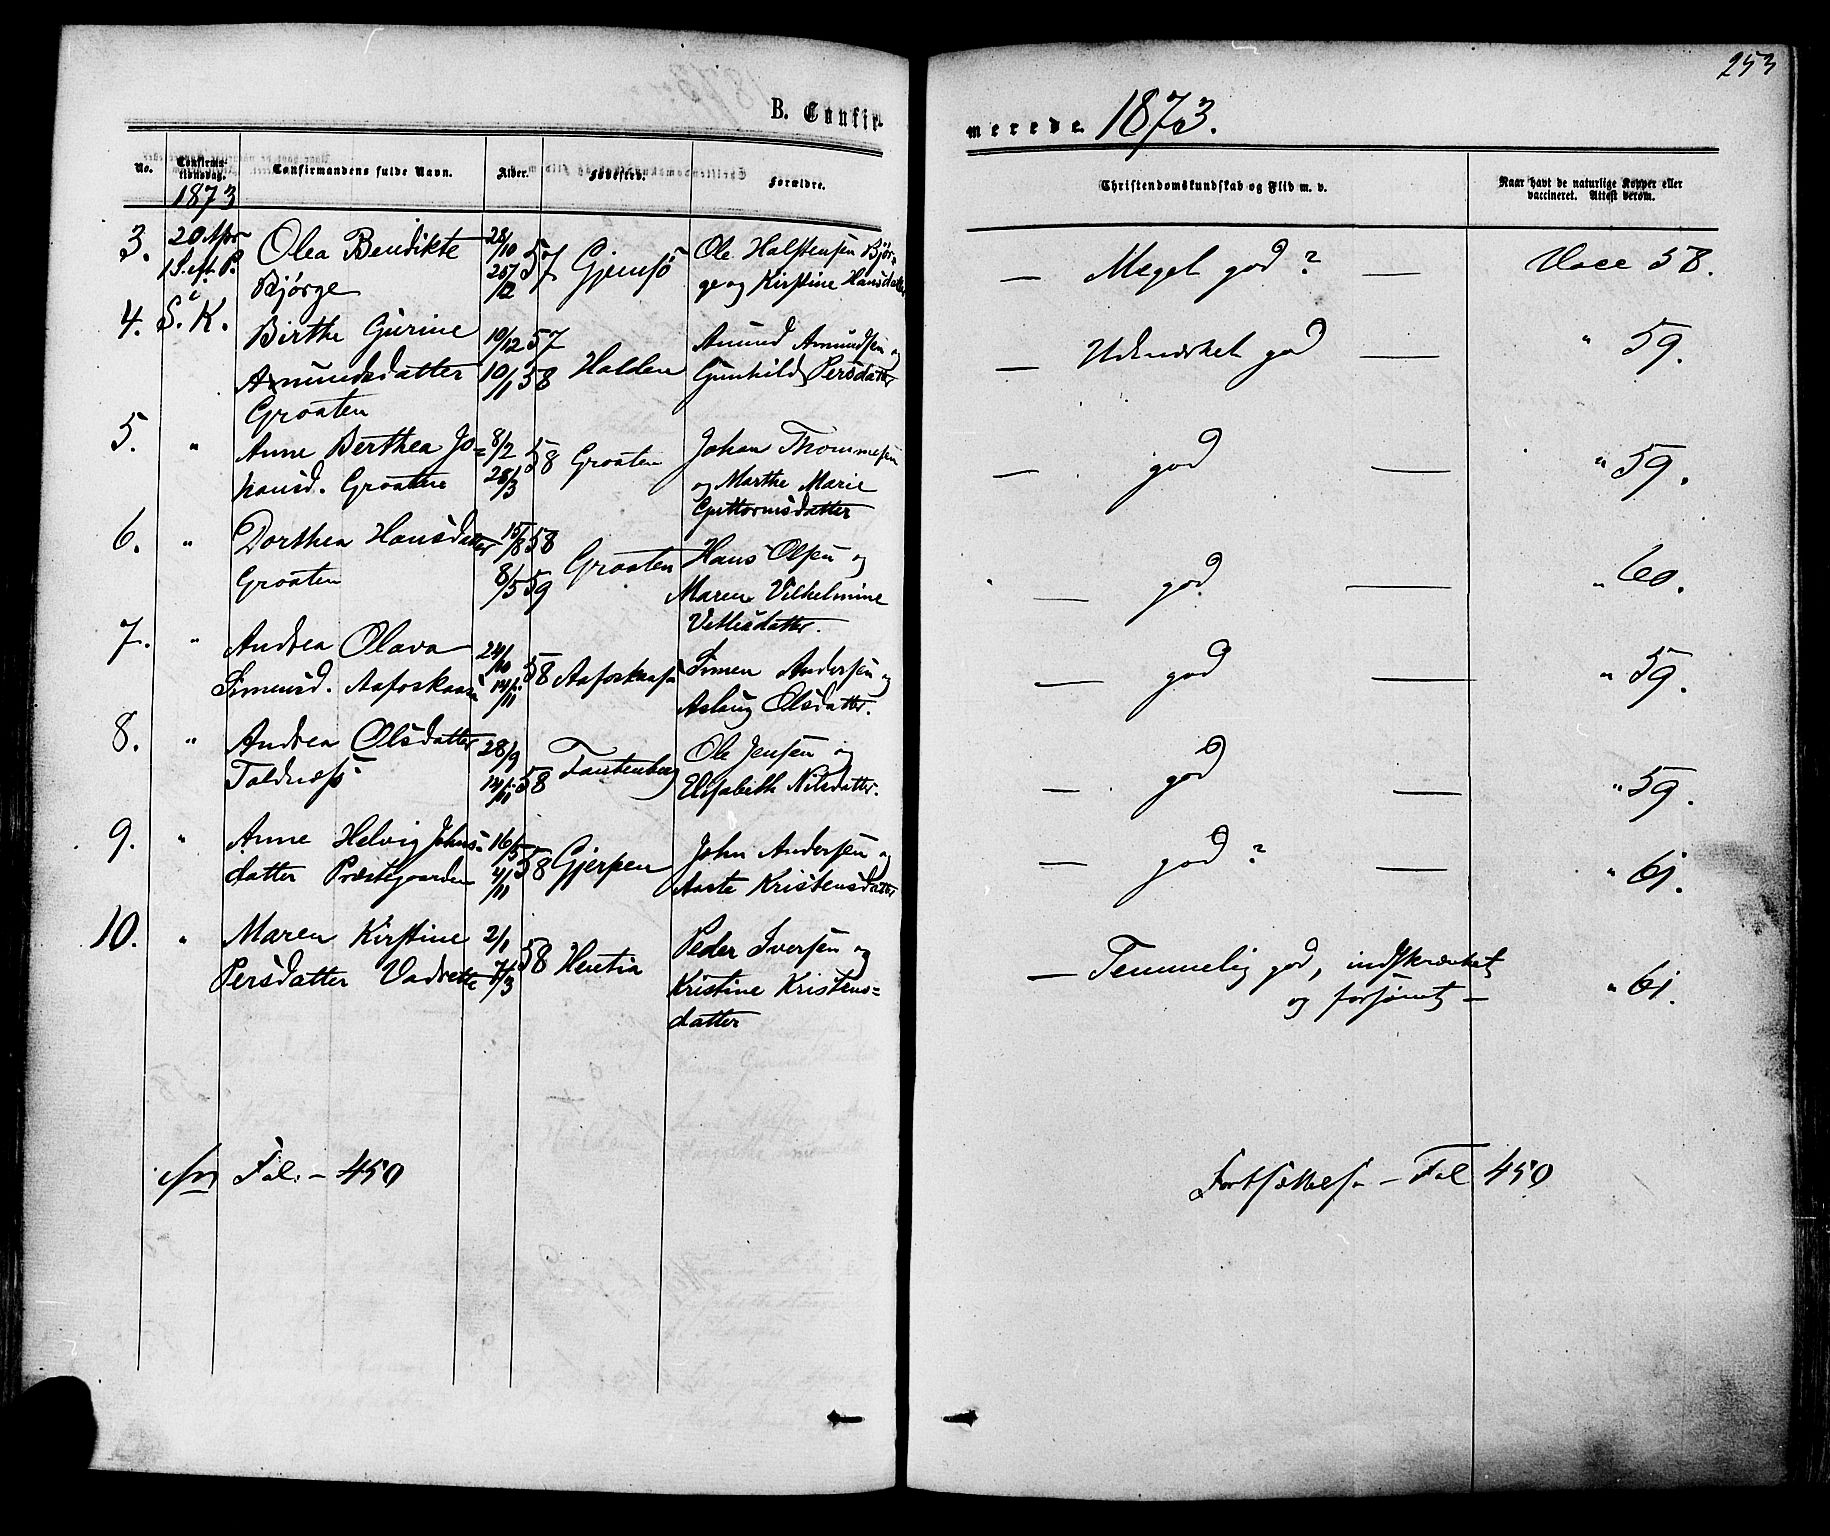 253
B. Confir-
merede. 1873.
No.
Confirma-
tionsdag.
Confirmandens fulde Navn.
Alder.
Fødested.
Forældre.
Christendomskundskab og Flid m. v.
Naar havt de naturlige Kopper eller
vaccineret. Attest derom.
1873
3. 20 Apr 28/10 57
Olea Bendikte
Bjørge
1 S. eft. P. 25/12
Gjemsö
Ole Halstensen Bjør-
ge og Kirstine Hansdatter
— Meget god? —
Vacc 58.
4. S. i K.
Birthe Gurine 10/12 57
Amundsdatter 10/1 58
Graaten
Halden
Amund Amundsen og
Gunhild Persdatter
— Udmærket god —
" 59.
5. "
Anne Berthea Jo- 8/2 58
hansd. Graaten 28/3
Graaten
Johan Thommesen
og Marthe Marie
Guttormsdatter
— god —
" 59.
6. "
Dorthea Hansdatter 15/8 58
Graaten 8/5 59
Graaten
Hans Olsen og
Maren Vilhelmine
Vetlesdatter.
— god —
" 60.
7. "
Andrea Olava 24/10 58
Simensd. Aafoskaasa 14/11
Aafoskaasa
Simen Andersen og
Aslaug Olsdatter.
— god —
" 59.
8. "
Andrea Olsdatter 28/9
Toldnæss 14/11 58
Fantenberg
Ole Jensen og
Elisabeth Nilsdatter.
— god —
" 59.
9. "
Anne Helvig Johns- 16/5 58
datter Præstegaarden 4/11
Gjerpen
John Andersen og
Aaste Kristensdatter
— god? —
" 61.
10. "
Maren Kirstine 2/1 58
Persdatter Vadrette 7/3
Hentia
Peder Iversen og
Kristine Kristens-
datter
— Temmelig god, indskrænket
og forsømt —
" 61.
Fol. - 450
Fortsættelse - Fol 450